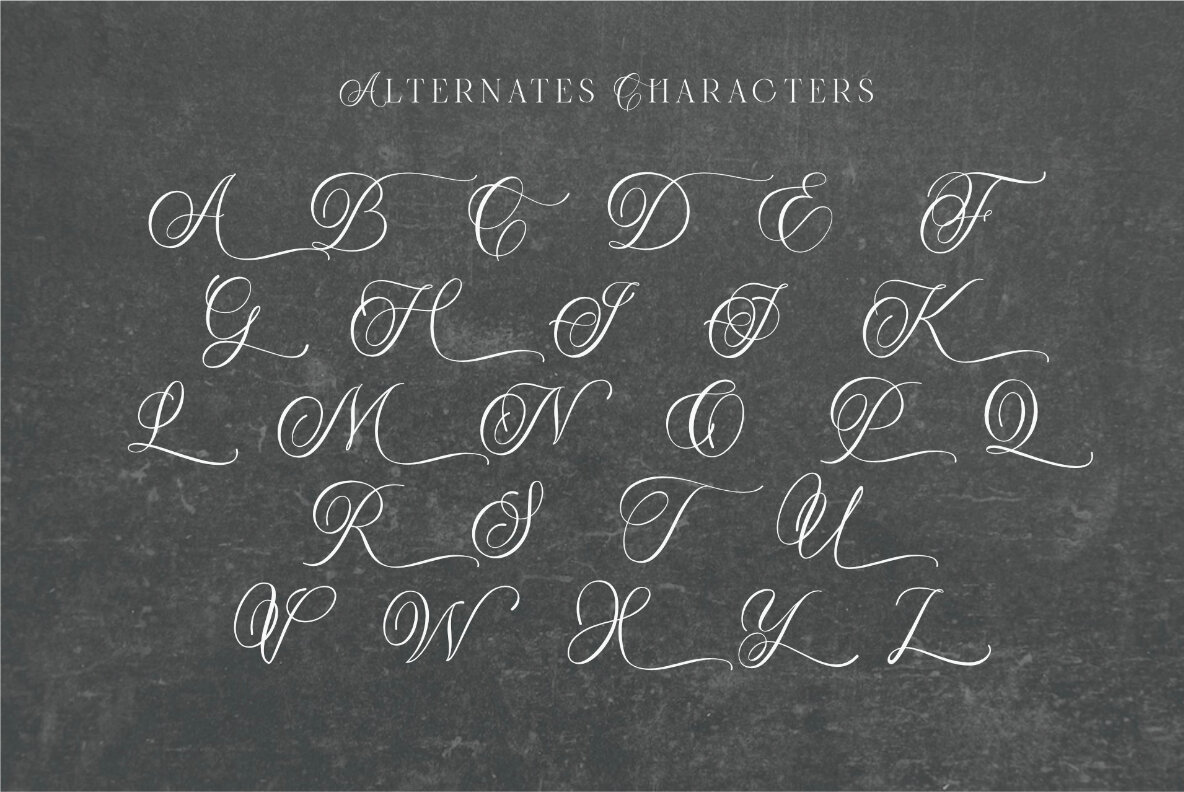 Alternates Characters
A B C D E F
G H I J K
L M N O P Q
R S T U
V W X Y Z